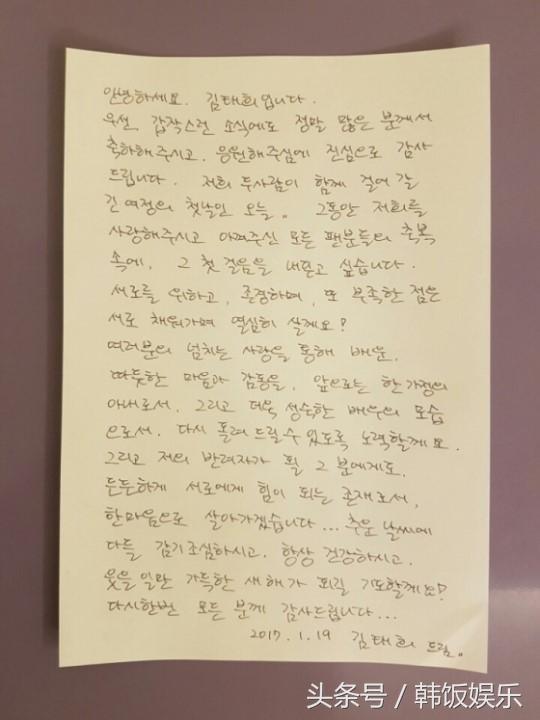 안녕하세요. 김태희입니다.
우선, 갑작스런 소식에도 정말 많은 분께서
축하해주시고. 응원해주심에 진심으로 감사
드립니다. 저희 두사람이 함께 걸어 갈
긴 여정의 첫날인 오늘. 그동안 저희를
사랑해주시고 아껴주신 모든 팬분들의 축복
속에, 그 첫 걸음을 내딛고 싶습니다.
서로를 위하고, 존경하며, 또 부족한 점은
서로 채워가며 열심히 살께요!
여러분의 넘치는 사랑을 통해 배운,
따뜻한 마음과 감동을, 앞으로는 한 가정의
아내로서. 그리고 더욱 성숙한 배우의 모습
으로서. 다시 돌려 드릴 수 있도록 노력할께요.
그리고 저의 반려자가 될 그 분에게도.
든든하게 서로에게 힘이 되는 존재로서,
한마음으로 살아가겠습니다... 추운 날씨에
다들 감기조심하시고. 항상 건강하시고.
웃을 일만 가득한 새해가 되길 기도할께요!
다시한번 모든 분께 감사드립니다...
2017. 1. 19 김태희 드림.
头条号 / 韩饭娱乐